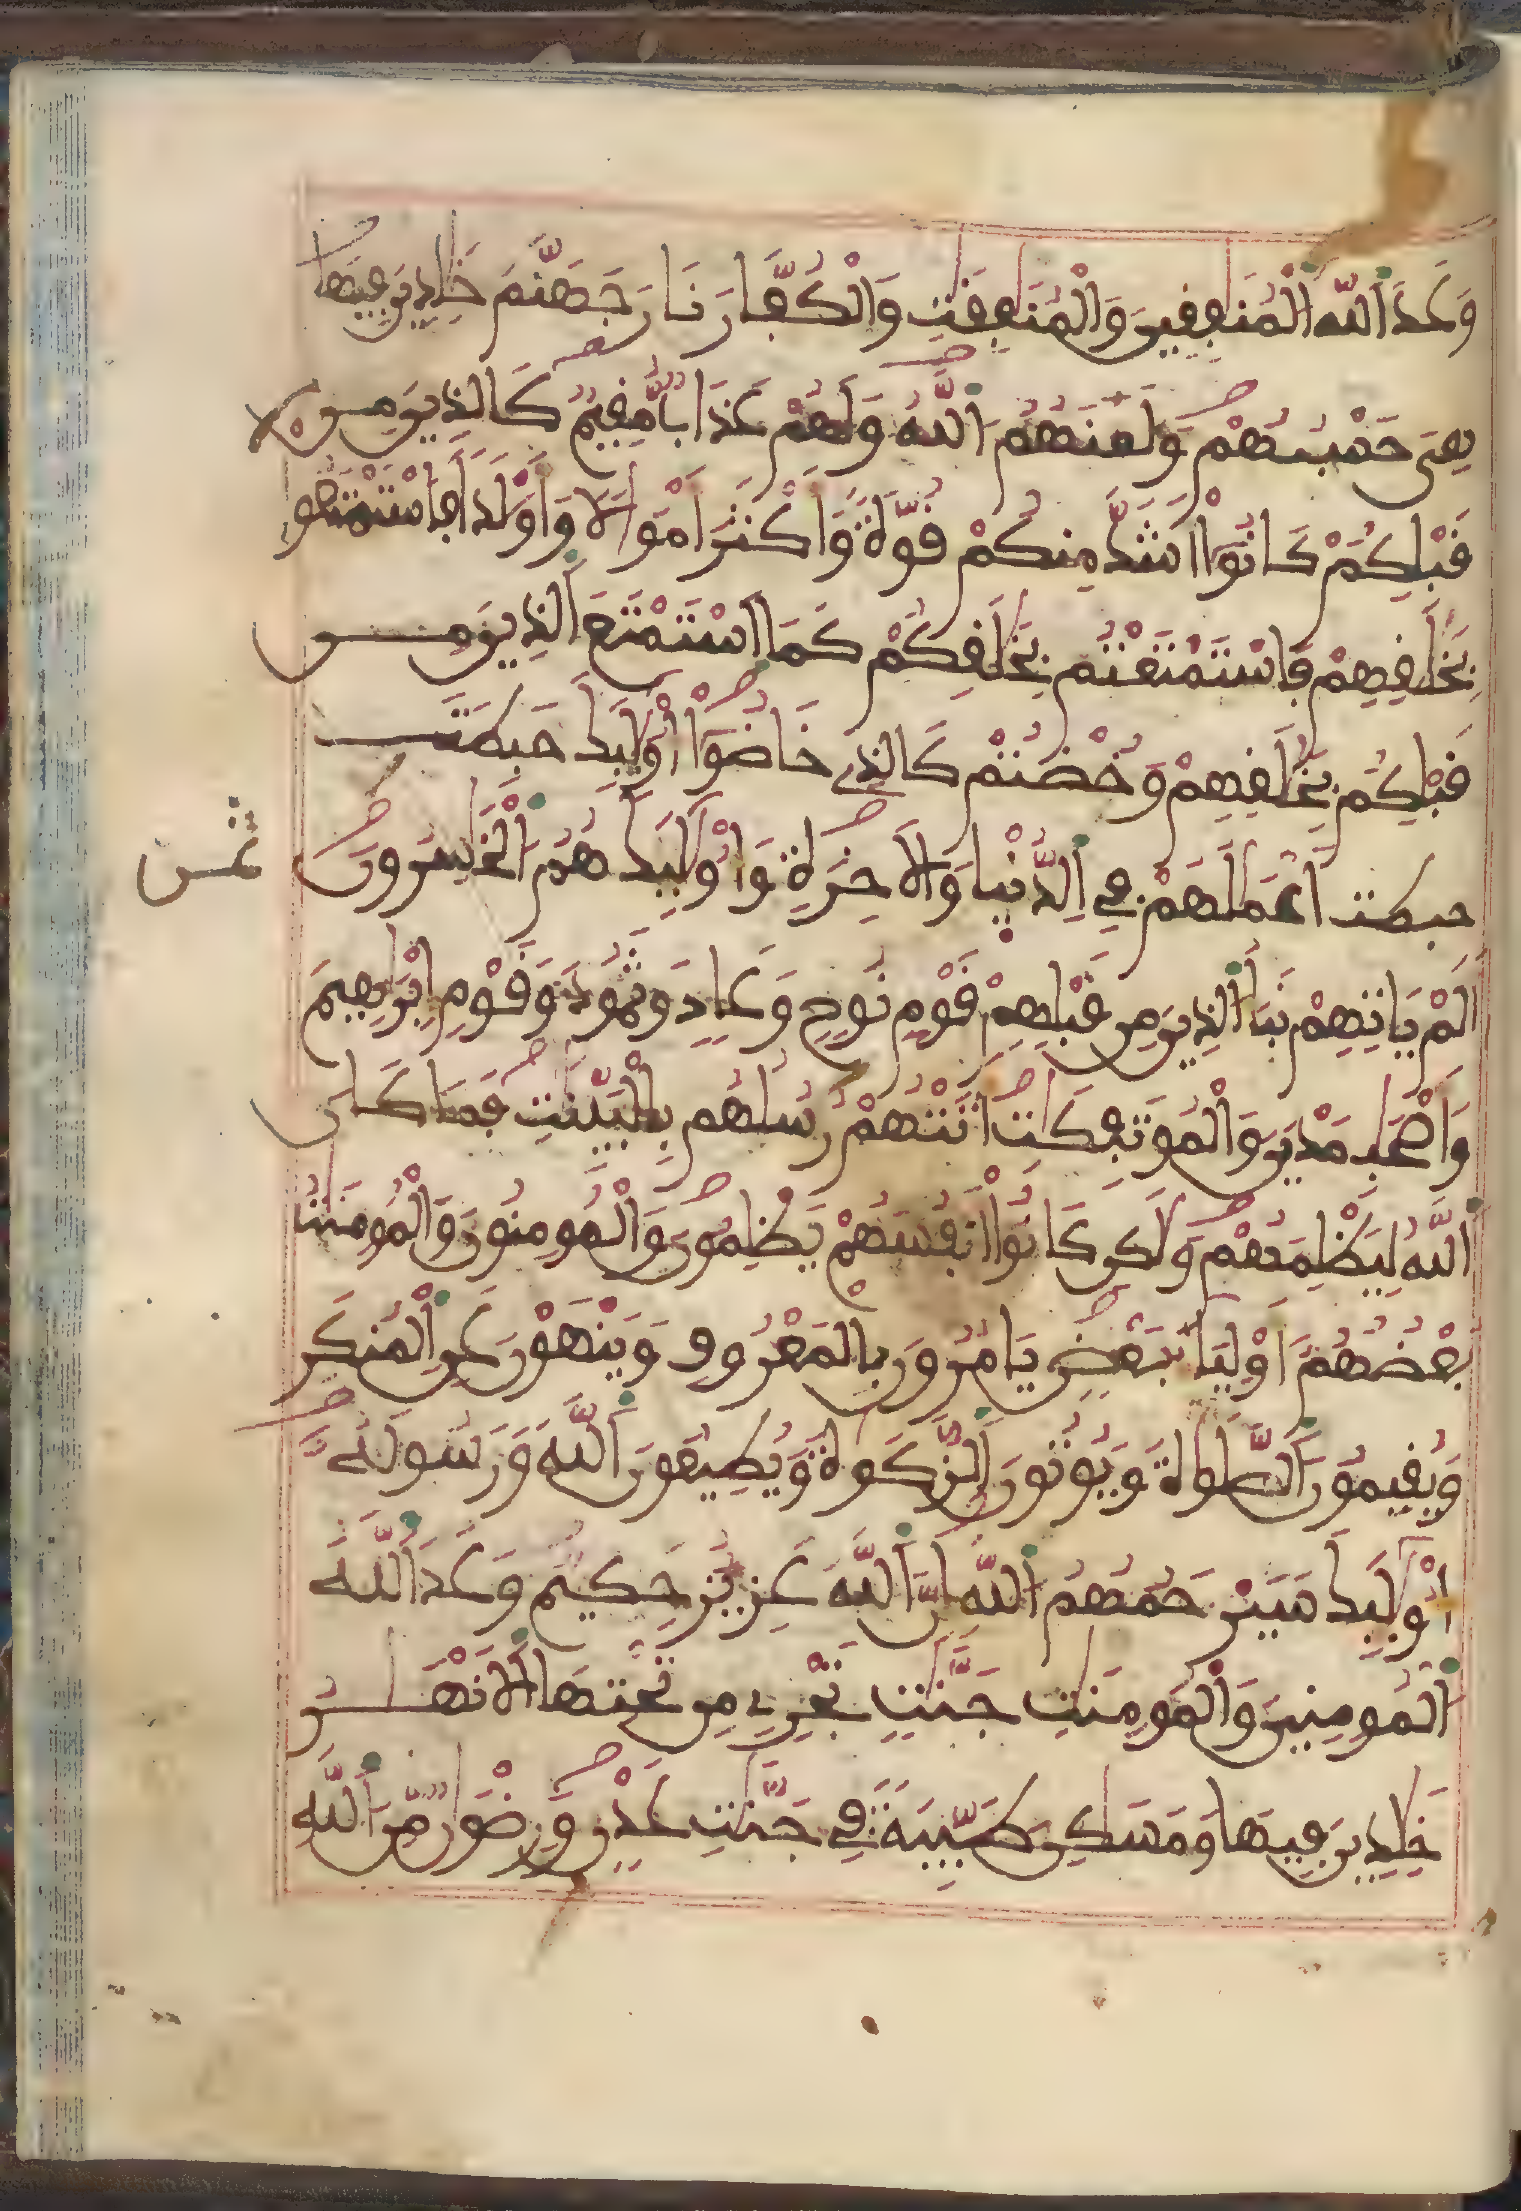 وَعَدَ اَللَّهُ اُلْمُنَٰفِقِينَ وَالْمُنَٰفِقَٰتِ وَالْكُفَّارَ نَارَ جَهَنَّمَ خَٰلِدِينَ فِيهَا
هِيَ حَسْبُهُمْ وَلَعَنَهُمُ اُللَّهُ وَلَهُمْ عَذَابٌ مُّقِيمٌ كَالذِينَ مِن
قَبْلِكُمْ كَانُوٓاْ أَشَدَّ مِنكُمْ قُوَّةً وَأَكْثَرَ أَمْوَٰلًا وَأَوْلَٰدًا فَاسْتَمْتَعُواْ
بِخَلَٰقِهِمْ فَاسْتَمْتَعْتُم بِخَلَٰقِكُمْ كَمَا اَسْتَمْتَعَ اَلذِينَ مِن
قَبْلِكُم بِخَلَٰقِهِمْ وَخُضْتُمْ كَالذِے خَاضُوٓاْ أُوْلَٰٓئِكَ حَبِطَتَ
حبطت أَعْمَٰلُهُمْ فِے اِلدُّنْيَا وَالَاخِرَةِ وَأُوْلَٰٓئِكَ هُمُ اُلْخَٰسِرُونَ
ثمن
أَلَمْ يَاتِهِمْ نَبَأُ اُلذِينَ مِن قَبْلِهِمْ قَوْمِ نُوحٍ وَعَادٍ وَثَمُودَ وَقَوْمِ إِبْرَٰهِيمَ
وَأَصْحَٰبِ مَدْيَنَ وَالْمُوتَفِكَٰتِ أَتَتْهُمْ رُسُلُهُم بِالْبَيِّنَٰتِ فَمَا كَانَ
اَللَّهُ لِيَظْلِمَهُمْ وَلَٰكِن كَانُوٓاْ أَنفُسَهُمْ يَظْلِمُونَ وَالْمُومِنُونَ وَالْمُومِنَٰتُ
بَعْضُهُمُ أَوْلِيَآءُ بَعْضٍ يَامُرُونَ بِالْمَعْرُوفِ وَيَنْهَوْنَ عَنِ اِلْمُنكَرِ
وَيُقِيمُونَ اَلصَّلَوٰةَ وَيُوتُونَ اَلزَّكَوٰةَ وَيُطِيعُونَ اَللَّهَ وَرَسُولَهُۥٓ
أُوْلَٰٓئِكَ سَيَرْحَمُهُمُ اُللَّهُ إِنَّ اَللَّهَ عَزِيزٌ حَكِيمٌ وَعَدَ اَللَّهُ
اُلْمُومِنِينَ وَالْمُومِنَٰتِ جَنَّٰتٍ تَجْرِے مِن تَحْتِهَا اَلَانْهَٰرُ
خَٰلِدِينَ فِيهَا وَمَسَٰكِنَ طَيِّبَةً فِے جَنَّٰتِ عَدْنٍ وَرِضْوَٰنٌ مِّنَ اَللَّهِ